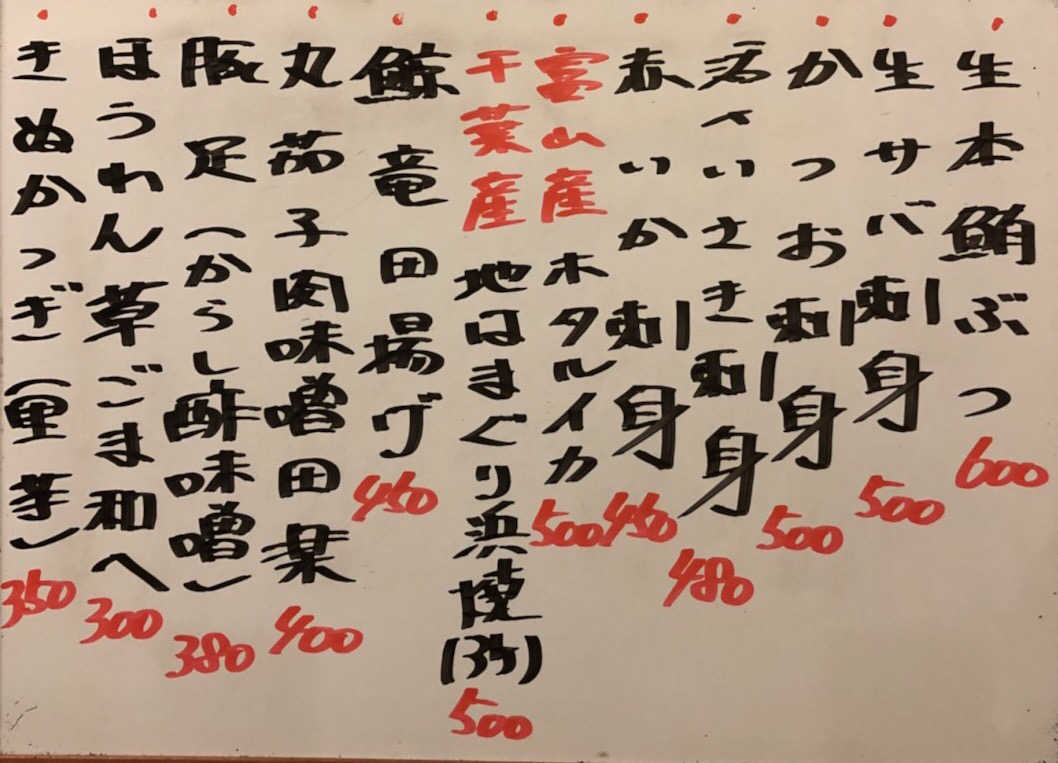 生本鮪ぶつ 600
生サバ刺身 500
かつお刺身 500
活〆いさき刺身 480
赤いか刺身 450
富山産 ホタルイカ 500
千葉産 地はまぐり浜焼(3ケ) 500
鯨竜田揚ゲ 450
丸茄子肉味噌田楽 400
豚足(からし酢味噌) 380
ほうれん草ごま和へ 300
きぬかつぎ(里芋) 350